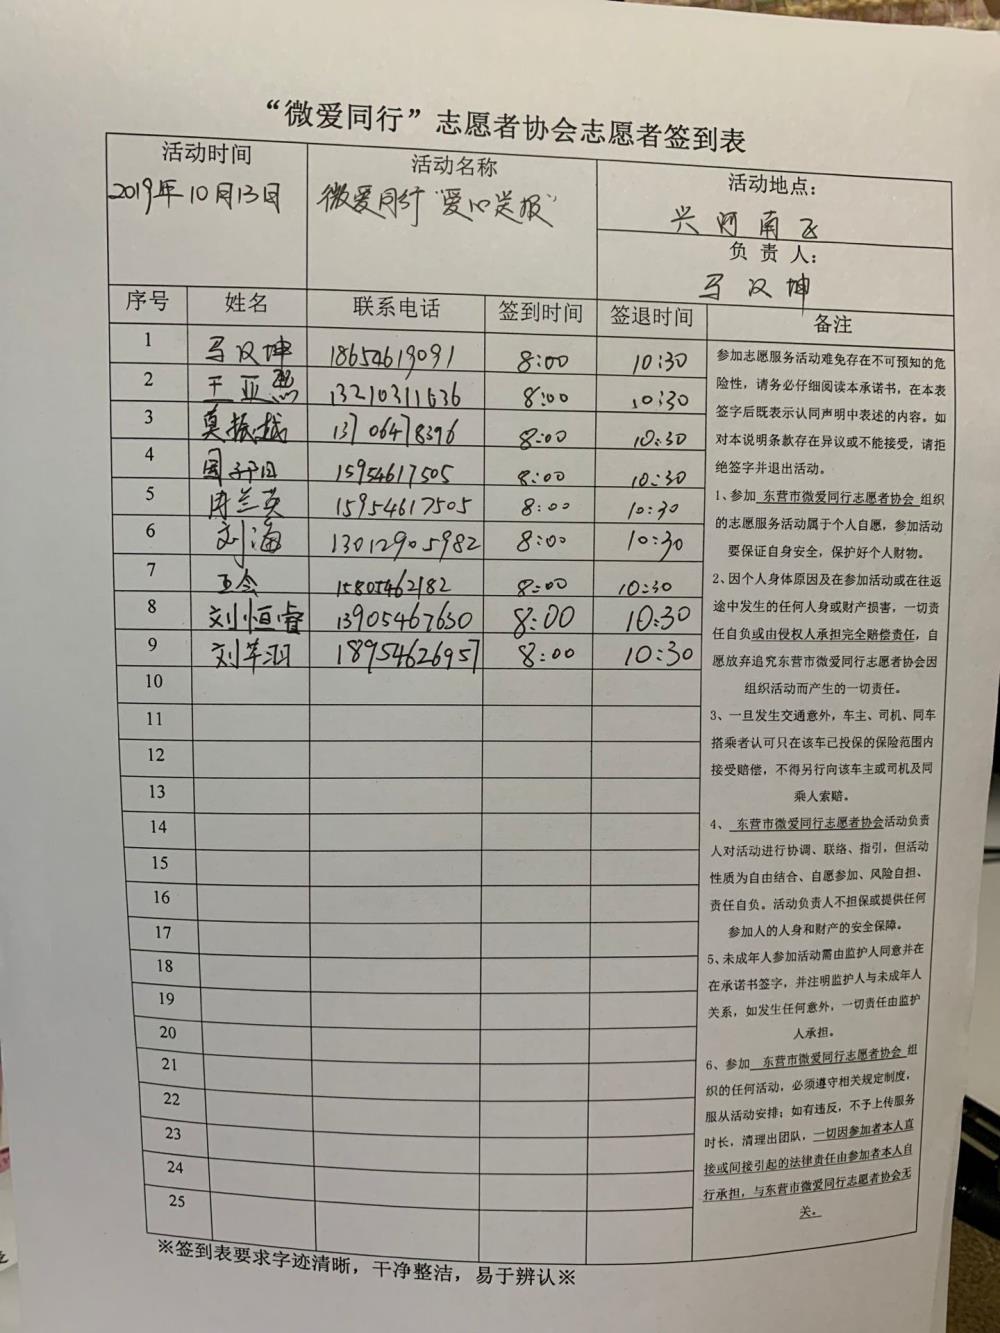 “微爱同行”志愿者协会志愿者签到表
活动时间
2019年10月13日
活动名称
微爱同行“爱心送报”
活动地点：
兴河南区
负责人：
马汉坤
序号 姓名 联系电话 签到时间 签退时间 备注
1 马汉坤 18654619091 8:00 10:30
2 王亚 13210311636 8:00 10:30
3 莫振越 13706478396 8:00 10:30
4 周子 15954617505 8:00 10:30
5 周兰英 15954617505 8:00 10:30
6 刘海 13012905982 8:00 10:30
7 15805462182 8:00 10:30
8 刘恒睿 13905467650 8:00 10:30
9 刘羽 18954626957 8:00 10:30
10
11
12
13
14
15
16
17
18
19
20
21
22
23
24
25
参加志愿服务活动难免存在不可预知的危
险性，请务必仔细阅读本承诺书，在本表
签字后既表示认同声明中表述的内容。如
对本说明条款存在异议或不能接受，请拒
绝签字并退出活动。
1、参加 东营市微爱同行志愿者协会 组织
的志愿服务活动属于个人自愿，参加活动
要保证自身安全，保护好个人财物。
2、因个人身体原因及在参加活动或在往返
途中发生的任何人身或财产损害，一切责
任自负或由侵权人承担完全赔偿责任，自
愿放弃追究东营市微爱同行志愿者协会因
组织活动而产生的一切责任。
3、一旦发生交通意外，车主、司机、同车
搭乘者认可只在该车已投保的保险范围内
接受赔偿，不得另行向该车主或司机及同
乘人索赔。
4、 东营市微爱同行志愿者协会活动负责
人对活动进行协调、联络、指引，但活动
性质为自由结合、自愿参加、风险自担、
责任自负。活动负责人不担保或提供任何
参加人的人身和财产的安全保障。
5、未成年人参加活动需由监护人同意并在
在承诺书签字，并注明监护人与未成年人
关系，如发生任何意外，一切责任由监护
人承担。
6、参加 东营市微爱同行志愿者协会 组
织的任何活动，必须遵守相关规定制度，
服从活动安排；如有违反，不予上传服务
时长，清理出团队，一切因参加者本人直
接或间接引起的法律责任由参加者本人自
行承担，与东营市微爱同行志愿者协会无
关。
※签到表要求字迹清晰，干净整洁，易于辨认※